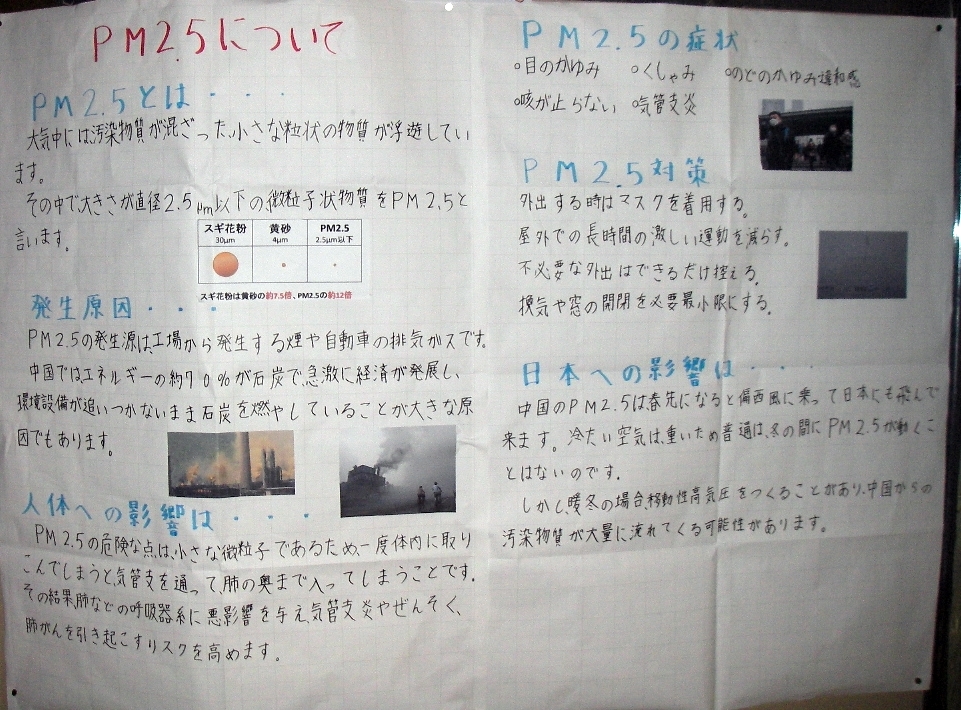 PM2.5について
PM2.5とは・・・
大気中には汚染物質が混ざった、小さな粒状の物質が浮遊してい
ます。
その中で大きさが直径2.5μm以下の、微粒子状物質をPM2.5と
言います。
スギ花粉 黄砂 PM2.5
30μm 4μm 2.5μm以下
スギ花粉は黄砂の約7.5倍、PM2.5の約12倍
発生原因・・・
PM2.5の発生源は、工場から発生する煙や自動車の排気ガスです。
中国ではエネルギーの約70%が石炭で、急激に経済が発展し、
環境設備が追いつかないまま石炭を燃やしていることが大きな原
因でもあります。
人体への影響は・・・
PM2.5の危険な点は、小さな微粒子であるため、一度体内に取り
こんでしまうと、気管支を通って、肺の奥まで入ってしまうことです。
その結果、肺などの呼吸器系に悪影響を与え、気管支炎やぜんそく、
肺がんを引き起こすリスクを高めます。
PM2.5の症状
○目のかゆみ ○くしゃみ ○のどのかゆみ違和感
○咳が止らない ○気管支炎
PM2.5対策
外出する時はマスクを着用する。
屋外での長時間の激しい運動を減らす。
不必要な外出はできるだけ控える。
換気や窓の開閉を必要最小限にする。
日本への影響は・・・
中国のPM2.5は、春先になると偏西風に乗って日本にも飛んで
来ます。冷たい空気は、重いため普通は、冬の間にPM2.5が動くこ
とはないのです。
しかし暖冬の場合、移動性高気圧をつくることがあり、中国からの
汚染物質が大量に流れてくる可能性があります。